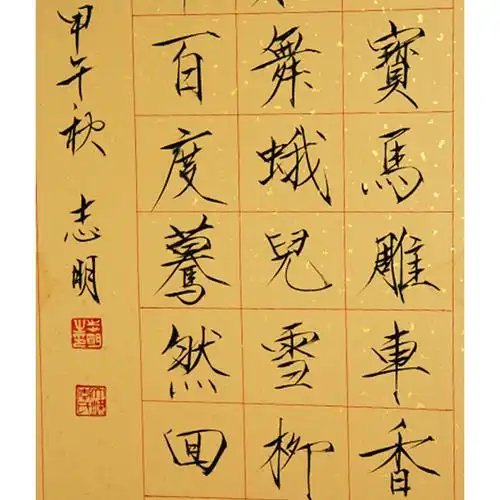 寶馬雕車香
舞蛾兒雪柳
百度驀然回
甲午秋 志明